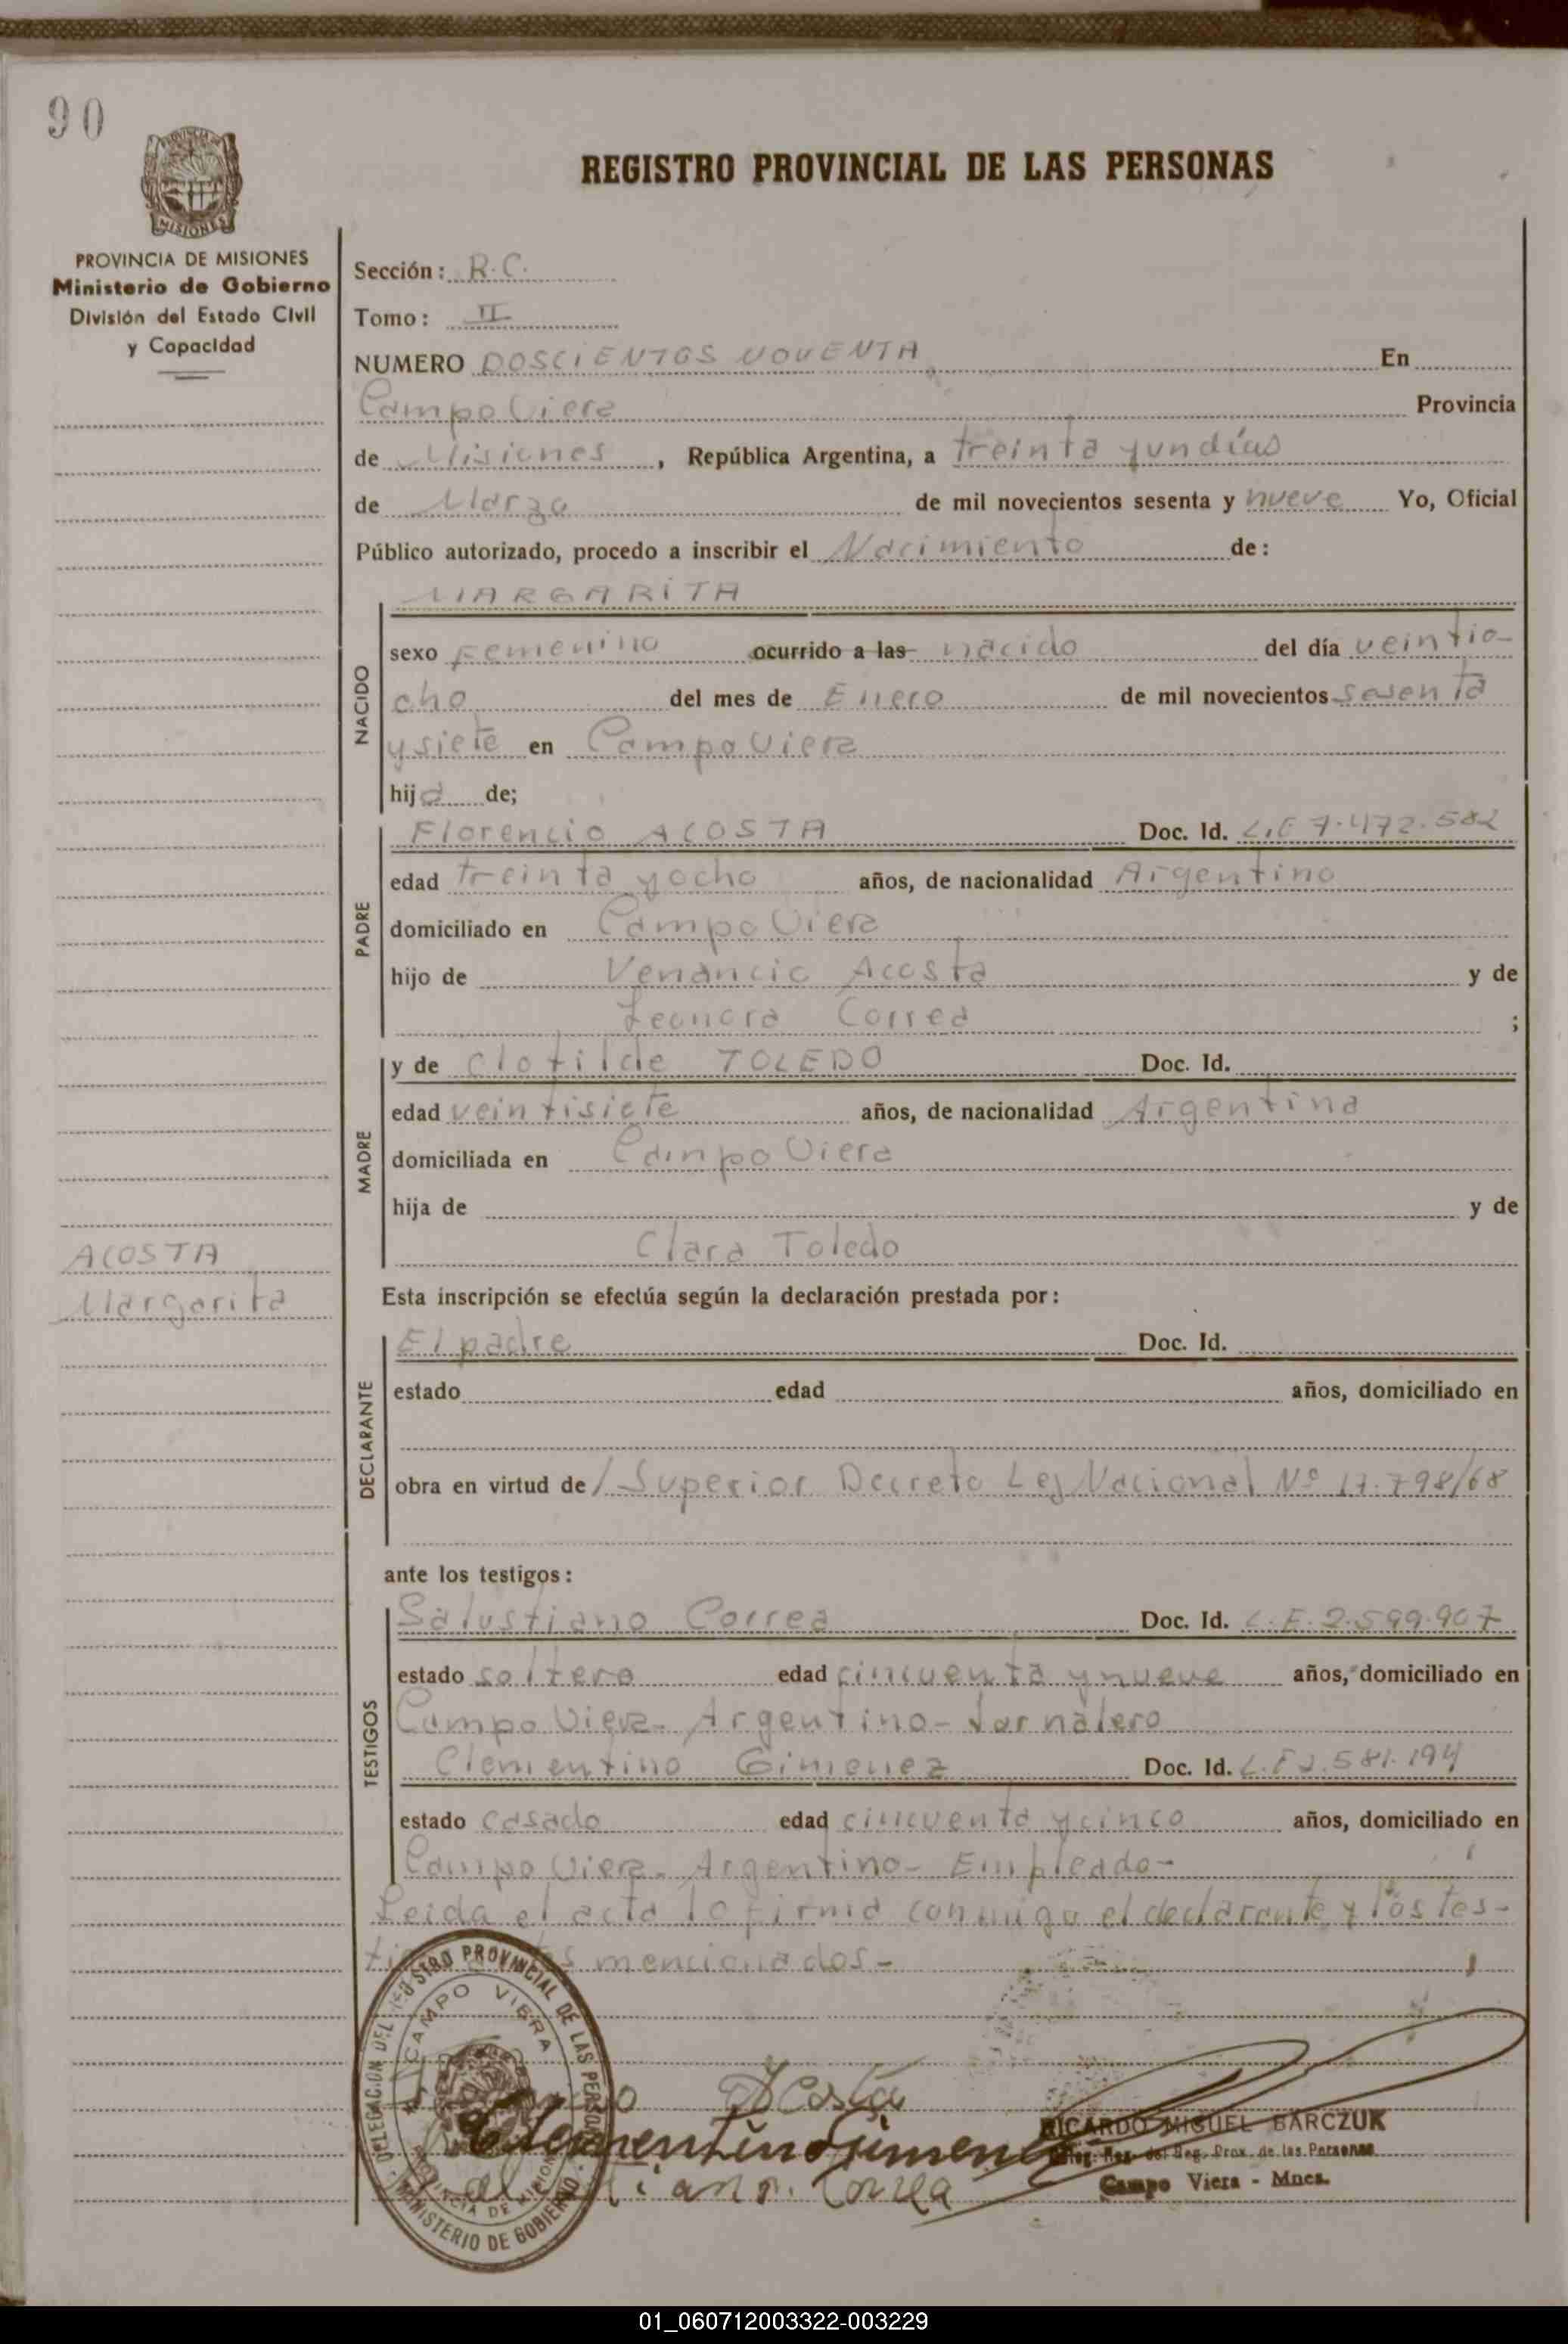 90
MISIONES
REGISTRO PROVINCIAL DE LAS PERSONAS
PROVINCIA DE MISIONES
Ministerio de Gobierno
División del Estado Civil
y Capacidad
Sección: R.C.
Tomo: II
NUMERO DOSCIENTOS NOVENTA En
Campo Viera Provincia
de Misiones, República Argentina, a treinta y un días
de Marzo de mil novecientos sesenta y nueve Yo, Oficial
Público autorizado, procedo a inscribir el Nacimiento de:
MARGARITA
NACIDO
sexo Femenino ocurrido a las nacido del día veintio-
cho del mes de Enero de mil novecientos sesenta
y siete en Campo Viera
hija de;
PADRE
Florencio ACOSTA Doc. Id. L.E 7.472.582
edad treinta y ocho años, de nacionalidad Argentino
domiciliado en Campo Viera
hijo de Venancio Acosta y de
Leonora Correa ;
MADRE
y de Clotilde TOLEDO Doc. Id.
edad veintisiete años, de nacionalidad Argentina
domiciliada en Campo Viera
hija de y de
Clara Toledo
ACOSTA
Margarita
Esta inscripción se efectúa según la declaración prestada por:
DECLARANTE
El padre Doc. Id.
estado edad años, domiciliado en
obra en virtud de / Superior Decreto Ley Nacional Nº 17.798/68
ante los testigos:
TESTIGOS
Salustiano Correa Doc. Id. L.E. 2.599.907
estado soltero edad cincuenta y nueve años, domiciliado en
Campo Viera- Argentino- Jornalero
Clementino Gimenez Doc. Id. L.E 2.581.194
estado casado edad cincuenta y cinco años, domiciliado en
Campo Viera- Argentino- Empleado-
Leida el acta lo firma conmigo el declarante y los tes-
mencionados-
DELEGACION DEL REGISTRO PROVINCIAL DE LAS PERSONAS
CAMPO VIERA
PROVINCIA DE MISIONES
MINISTERIO DE GOBIERNO
Acosta
Clementino Gimenez
Salustiano Correa
RICARDO MIGUEL BARCZUK
del Reg. Prov. de las Personas
Campo Viera - Mnes.
01_060712003322-003229